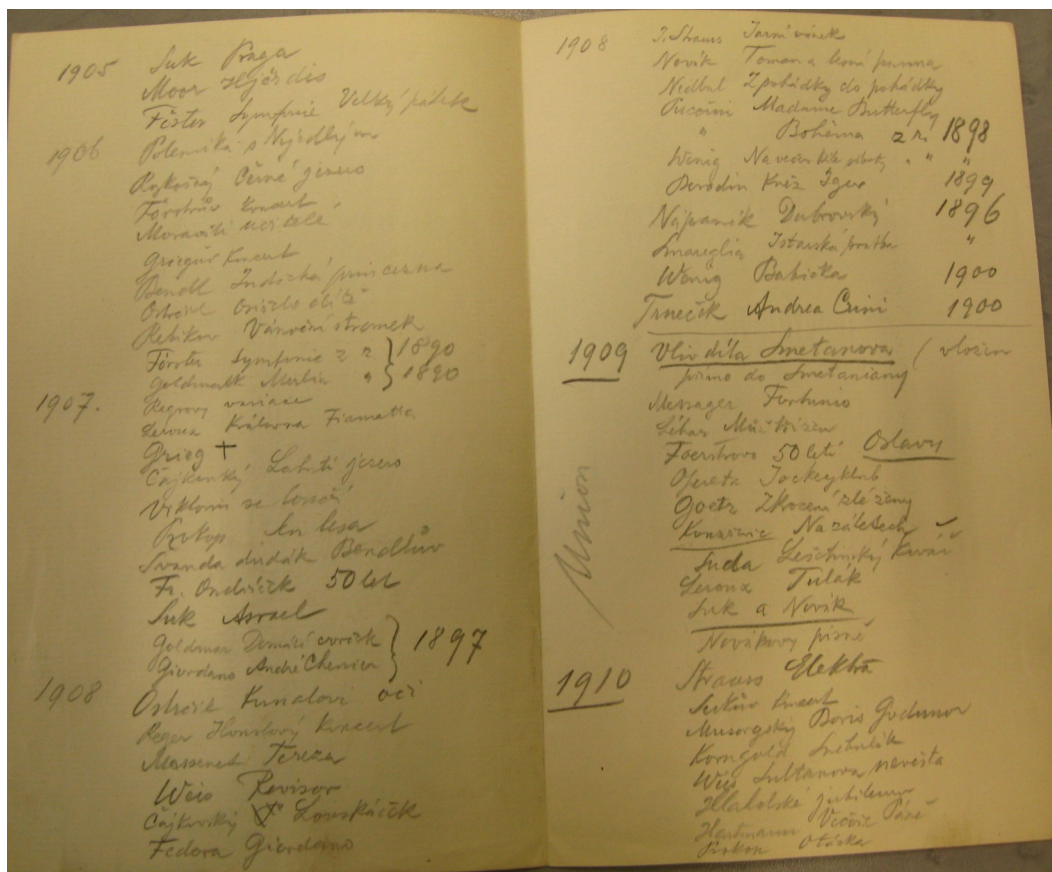 1905 Suk Praga
Moor Hjördis
Förster Symfonie Velký pátek
1906 Polemika s Nejedlým
Rozkošný Černé jezero
Försterův koncert
Moravští učitelé
Griegův koncert
Bendl Indická princezna
Ostrčil
Rebikov Vánoční stromek
Förster Symfonie z r. 1890
Goldmark Merlin " 1890
1907. Regrovy variace
Leroux Královna Fiametta
Grieg +
Čajkovský Labutí jezero
Viklání se
Prokop Sen lesa
Švanda dudák Bendlův
Fr. Ondříček 50 let
Suk Asrael
Goldmar Domácí cvrček
Giordano André Chenier 1897
1908 Ostrčil Kunalovi oči
Reger Houslový koncert
Massenet Tereza
Weis Revisor
Čajkovský Louskáček
Fedora Giordano
1908 J. Strauss Jarní vánek
Novák Toman a lesní panna
Nedbal Z pohádky do pohádky
Puccini Madame Butterfly
" Bohéma z r. 1898
Wenig Na večer bílé soboty " " "
Borodin Kníž Igor 1899
Nápravník Dubrovský 1896
Smareglia Istarská svatba "
Wenig Babička 1900
Trneček Andrea Crini 1900
1909 Vliv díla Smetanova (vložen
přímo do Smetaniany)
Messager Fortunio
Lehar Muž tří žen
Foerstrovo 50 letí Oslavy
Opereta Jockeyklub
Goetz Zkrocení zlé ženy
Kovařovic Na zálesech
Suda Lešetínský kovář
Leroux Tulák
Suk a Novák
Novákovy písně
Union
1910 Strauss Elektra
Sukův koncert
Musorgský Boris Godunov
Korngold Sněhulák
Weis Sultanova nevěsta
Hlaholské jubileum
Hartmann Večeře Páně
Prokop Otázka